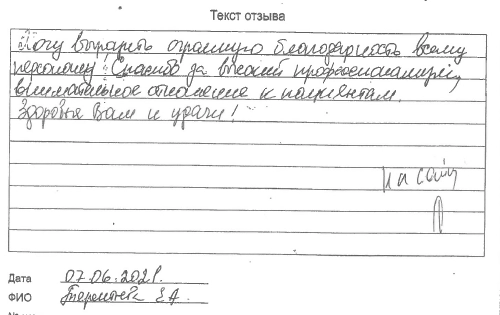 Текст отзыва
Хочу выразить огромную благодарность всему
персоналу! Спасибо за высокий профессионализм,
внимательное отношение к пациентам.
Здоровья Вам и удачи!
на сайт
Дата 07.06.2021.
ФИО Е.А.